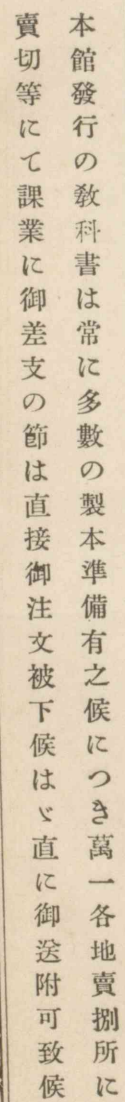 本館發行の教科書は常に多數の製本準備有之候につき萬一各地賣捌所に
賣切等にて課業に御差支の節は直接御注文被下候はゞ直に御送附可致候